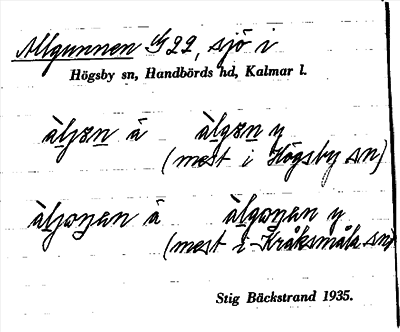 Allgunnen 4/G22, sjö i
Högsby sn, Handbörds hd, Kalmar l.
ä àlgɷn y
(mest i Högsby sn)
ä àlgɷnen y
(mest i Kråksmåla sn)
Stig Bäckstrand 1935.